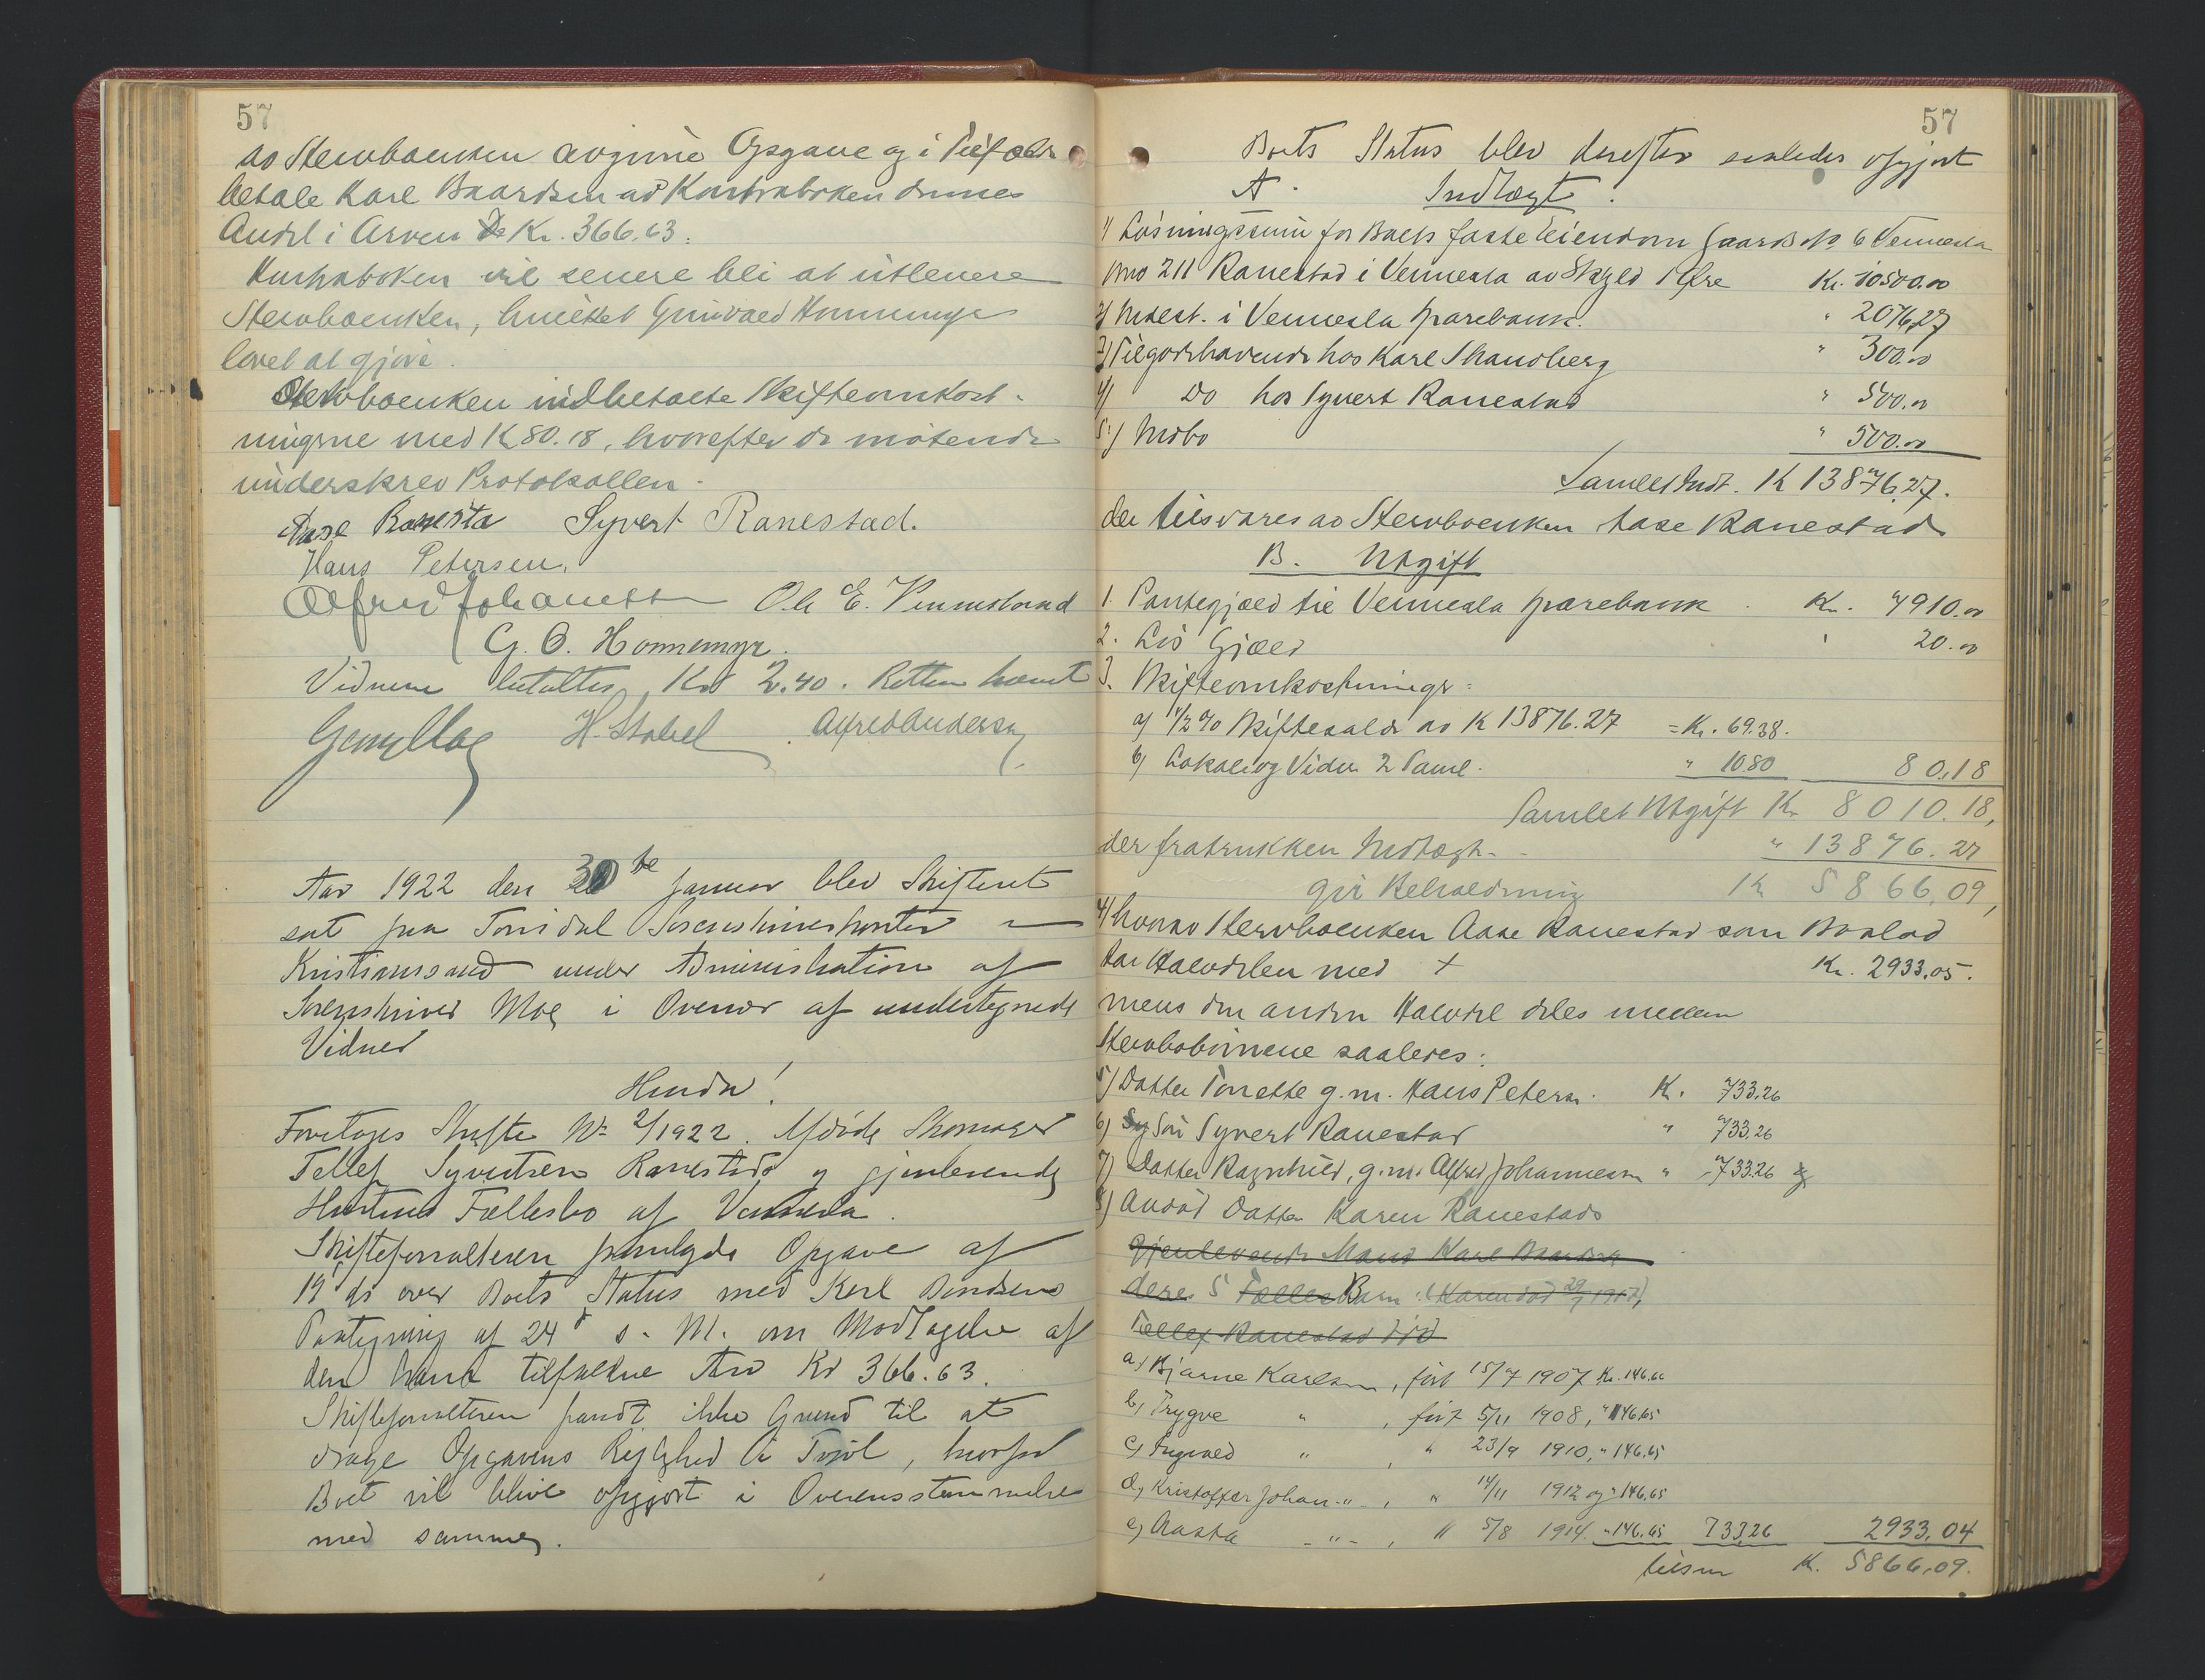 57
av Stervboenken avgivne Opgave og i Tilfælde
betale Karl Baardsen av Kontraboken dennes
Andel i Arven Kr. 366,63.
Kontraboken vil senere bli at utlevere
Stervboenken, hvilket Gunvald Honnemyr
lovet at gjøre.
Stervboenken indbetalte Skifteomkost-
ningene med K 80.18, hvorefter de møtende
underskrev Protokollen.
Aase Syvert Ranestad.
Hans Petersen.
Alfred Johannessen Ole E. Vennesland
G. O. Honnemyr.
Vidnene betaltes Kr 2.40. Retten hævet
H. Stabel Alfred Andersen
Aar 1922 den 30te Januar blev Skifteret
sat paa Torridal Sorenskriverkontor i
Kristianssand under Administration af
Sorenskriver Moe i Overvær af undertegnede
Vidner
Hvorda!
Foretoges Skifte No 2/1922. Afdøde Skomager
Tellef Syvertsen Ranestads og gjenlevende
Hustrus Fællesbo af Vennesla.
Skifteforvalteren fremlagde Opgave af
19 ds over Boets Status med Karl Baardsens
Paategning af 24 s. M. om Modtagelse af
den ham tilfaldne Arv Kr 366.63.
Skifteforvalteren fandt ikke Grund til at
drage Opgavens Rigtighed i Tvivl, hvorfor
Boet vil blive opgjort i Overensstemmelse
med samme.
57
Boets Status blev derefter saaledes opgjort
A. Indtægt.
1) Løsningssum for Boets faste Eiendom Gaards No 6 Vennesla
Bno 211 Ranestad i Vennesla av Skyld 1 Øre Kr. 10500.00
2) Indest. i Vennesla Sparebank. " 2076,27
3) Tilgodehavende hos Karl Strandberg " 300.00
4) Do hos Syvert Ranestad " 500.00
5) Indbo " 500.00
Samlet Indt. K 13876,27.
der tilsvares av Stervboenken Aase Ranestad
B. Utgift
1. Pantegjæld til Vennesla Sparebank Kr. 7910.00
2. Løs Gjæld " 20.00
3. Skifteomkostninger:
a) 1/2 % Skiftesaldo av K 13876.27 = Kr. 69.38.
b) Lokale og Vidner 2 Saml. " 10.80 80,18
Samlet Utgift Kr 8010.18,
der fratrukken Indtægt " 13876.27
gir Beholdning K 5866,09,
4) hvorav Stervboenken Aase Ranestad som Boslod
tar Halvdelen med + Kr. 2933,05.
mens den anden Halvdel deles mellem
Stervbobørnene saaledes:
5) Datter Torrette g.m. Hans Petersen. K. 733,26
6) Søn Syvert Ranestad " 733,26
7) Datter Ragnhild, g.m. Alfred Johannessen " 733.26 og
8) Avdød Datter Karen Ranestads
Gjenlevende Mand Karl Baardsen
deres 5 Fælles Barn (Karen død 29/7 1917),
Tellef Ranestad død
a) Bjarne Karlsen, født 15/7 1907 Kr. 146.66
b) Trygve " , født 5/11 1908, " 146,65
c) Ingvald " , " 23/9 1910, " 146,65
d) Kristoffer Johan " , " 14/11 1912 og " 146,65
e) Aasta " , " 5/8 1914. " 146.65 733,26 2933,04
tilsm K. 5866,09.